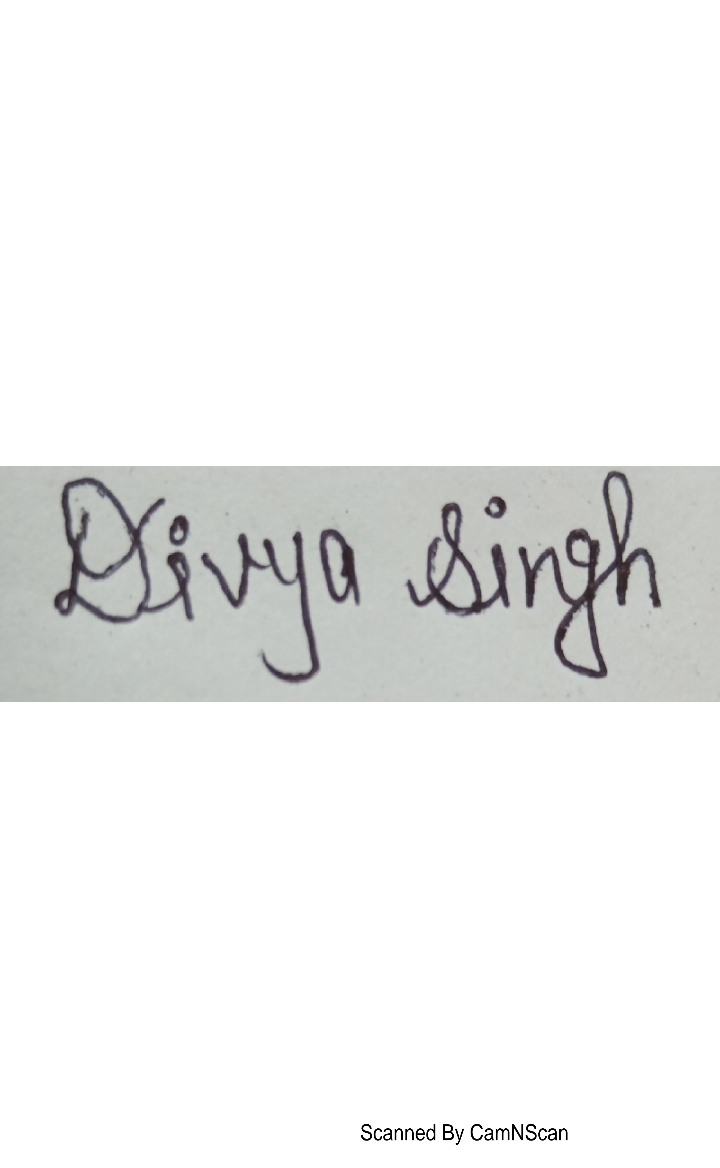 Divya Singh
Scanned By CamNScan